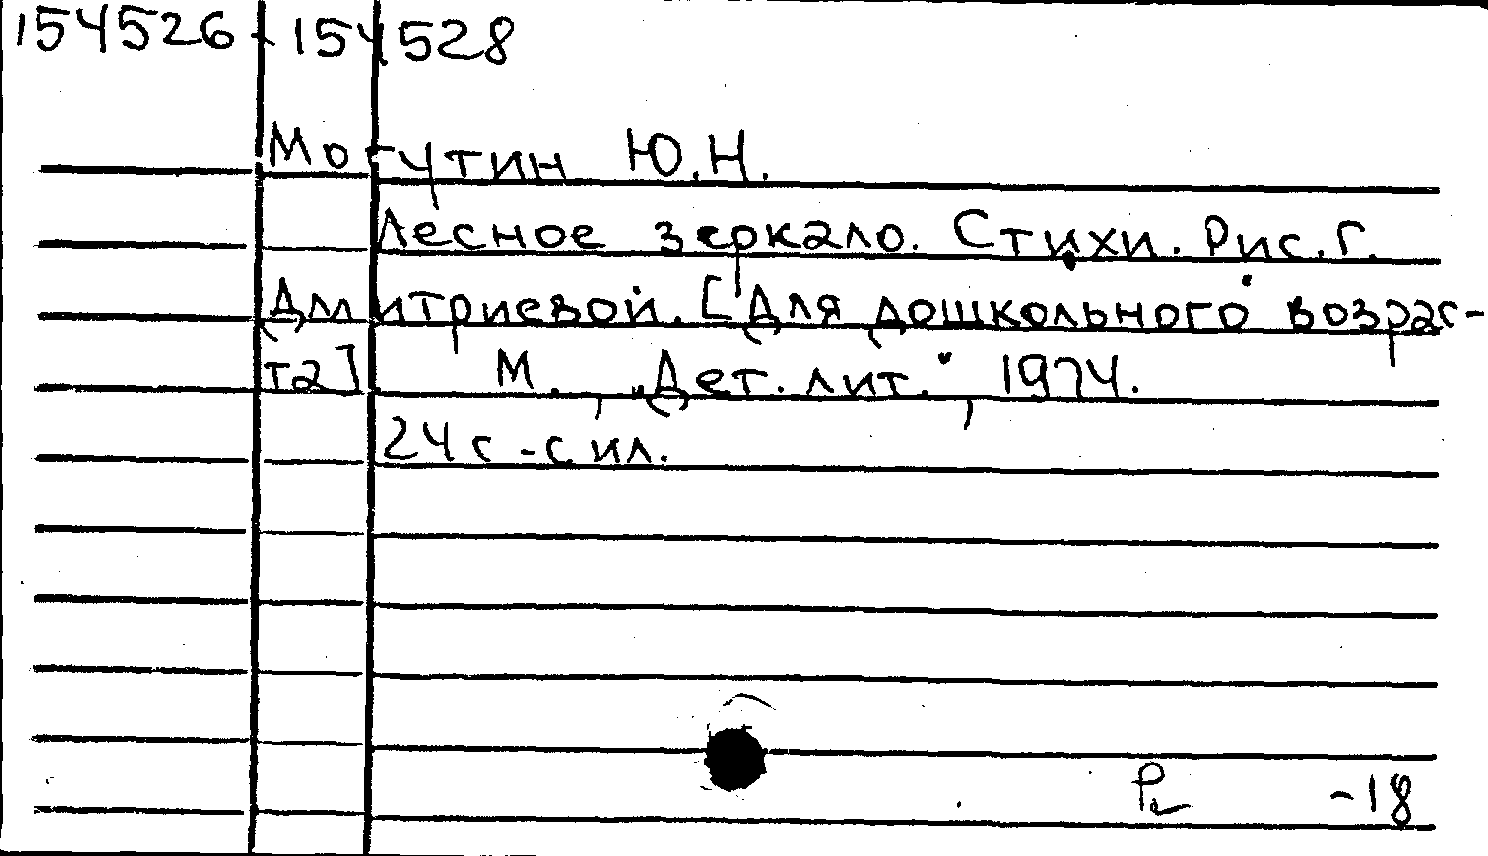 154526-154528
Могутин Ю.Н.
Лесное зеркало. Стихи. Рис. Г.
Дмитриевой. [Для дошкольного возрас-
та] М., „Дет. лит.", 1974.
24 с. с ил.
-18